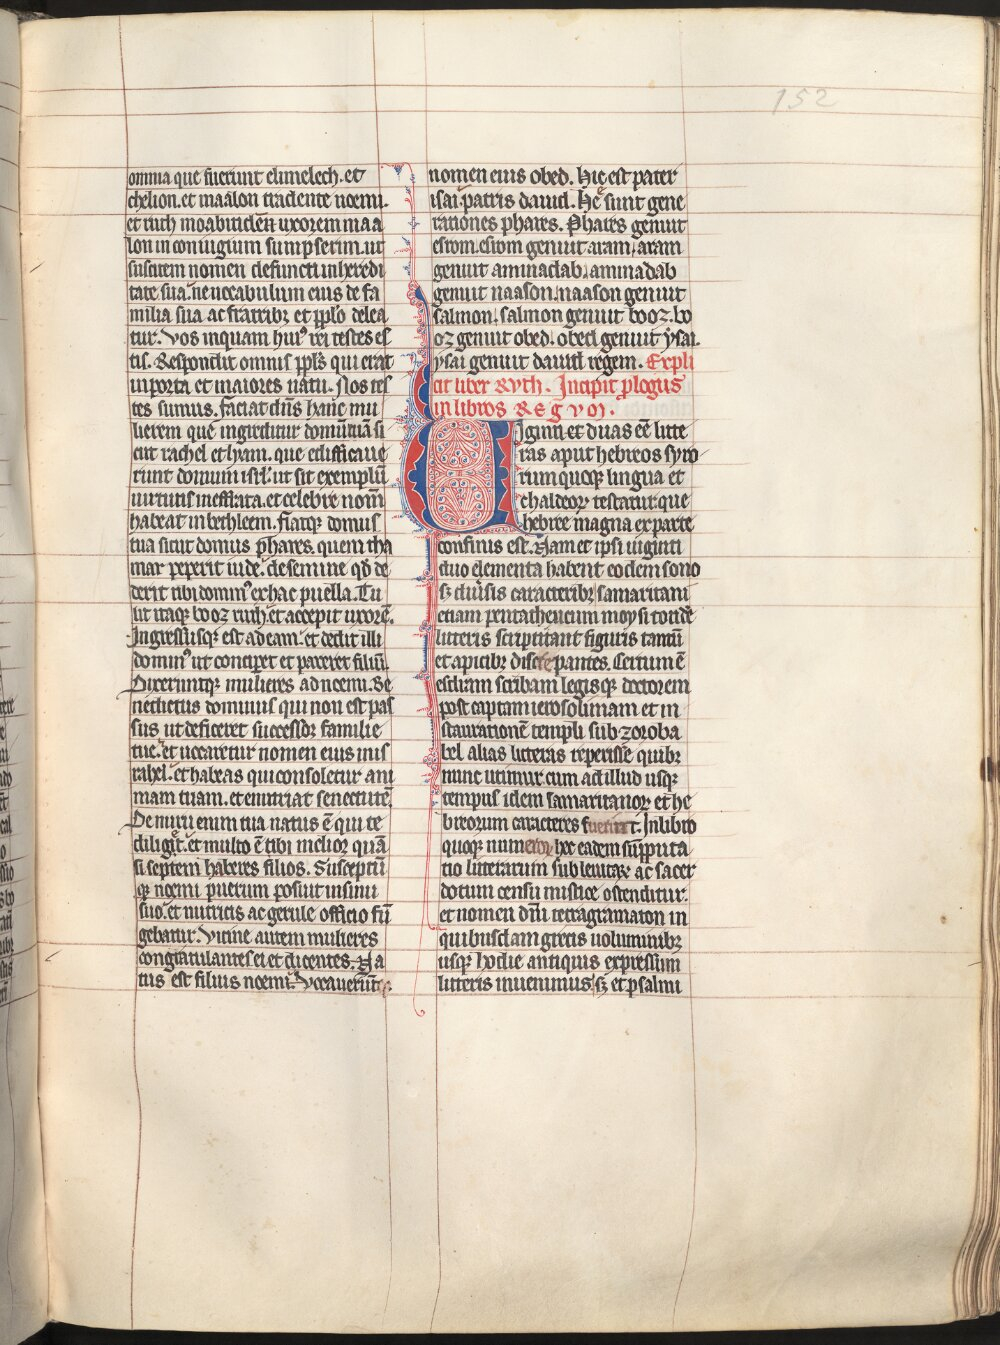 152
omnia que fuerunt elimelech. et
chelion. et maalon tradente noemi.
et ruth moabitidē. ī uxorem maa
lon in coniugium sumpserim. ut
suscitem nomen defuncti in heredi
tate sua. ne uocabulum eius de fa
milia sua ac fratribꝫ et pplo delea
tur. Vos inquam huiꝰ rei testes es
tis. Respondit omnis pplꝫ qui erat
in porta et maiores natu. Nos tes
tes sumus. faciat dn̄s hanc mu
lierem que ingreditur domū tuā si
cut rachel et lyam. que edificaue
runt domum isrl̓. ut sit exemplū
uirtutis in effrata. et celebre nom̄
habeat in bethleem. fiatqꝫ domus
tua sicut domus phares. quem tha
mar peperit iude. de semine qd̓ de
derit tibi dominꝰ ex hac puella. Tu
lit itaqꝫ booz ruth. et accepit uxorē.
Ingressusqꝫ est ad eam. et dedit illi
dominꝰ ut conciperet et pareret filiū.
Dixeruntqꝫ mulieres ad noemi. Be
nedictus dominus qui non est pas
sus ut deficeret successor familie
tue. et uocaretur nomen eius in is
rahel. et habeas qui consoletur ani
mam tuam. et enutriat senectutē.
De nuru enim tua natus ē qui te
diligit. et multo ē tibi melior quā
si septem haberes filios. Susceptū
qꝫ noemi puerum posuit in sinu
suo. et nutricis ac gerule officio fū
gebatur. Vicine autem mulieres
congratulantes ei et dicentes. Na
tus est filius noemi. Vocauerūt
nomen eius obed. Hic est pater
isai. patris dauid. He sunt gene
rationes phares. Phares genuit
esrom. esrom genuit aram. aram
genuit aminadab. aminadab
genuit naason. naason genuit
salmon. salmon genuit booz. bo
oz genuit obed. obed genuit ysai.
ysai genuit dauid regem. Expli
cit liber Ruth. Incipit ꝓlogus
in libros Regvm.
Uiginti et duas eē litte
ras aput hebreos syro
rum quoqꝫ lingua et
chaldeorꝫ testatur. que
hebree magna ex parte
confinis est. Nam et ipsi uiginti
duo elementa habent eodem sono
sꝫ diu̓sis caracteribꝫ. samaritani
etiam pentatheucum moysi totidē
litteris scriptitant figuris tantū
et apicibꝫ discrepantes. Certum ē
esdram scribam legisqꝫ doctorem
post captam ierosolimam et in
staurationē templi sub zoroba
bel alias litteras reperisse quibꝫ
nunc utimur. cum ad illud usqꝫ
tempus idem samaritanorꝫ et he
breorum caracteres fuerint. In libro
quoqꝫ numerorꝫ hec eadem supputa
tio litterarum sub leuitarꝫ ac sacer
dotum censu mistice ostenditur.
et nomen dn̄i tetragramaton in
quibusdam grecis uoluminibꝫ
usqꝫ hodie antiquis expressum
litteris inuenimus. sꝫ et psalmi